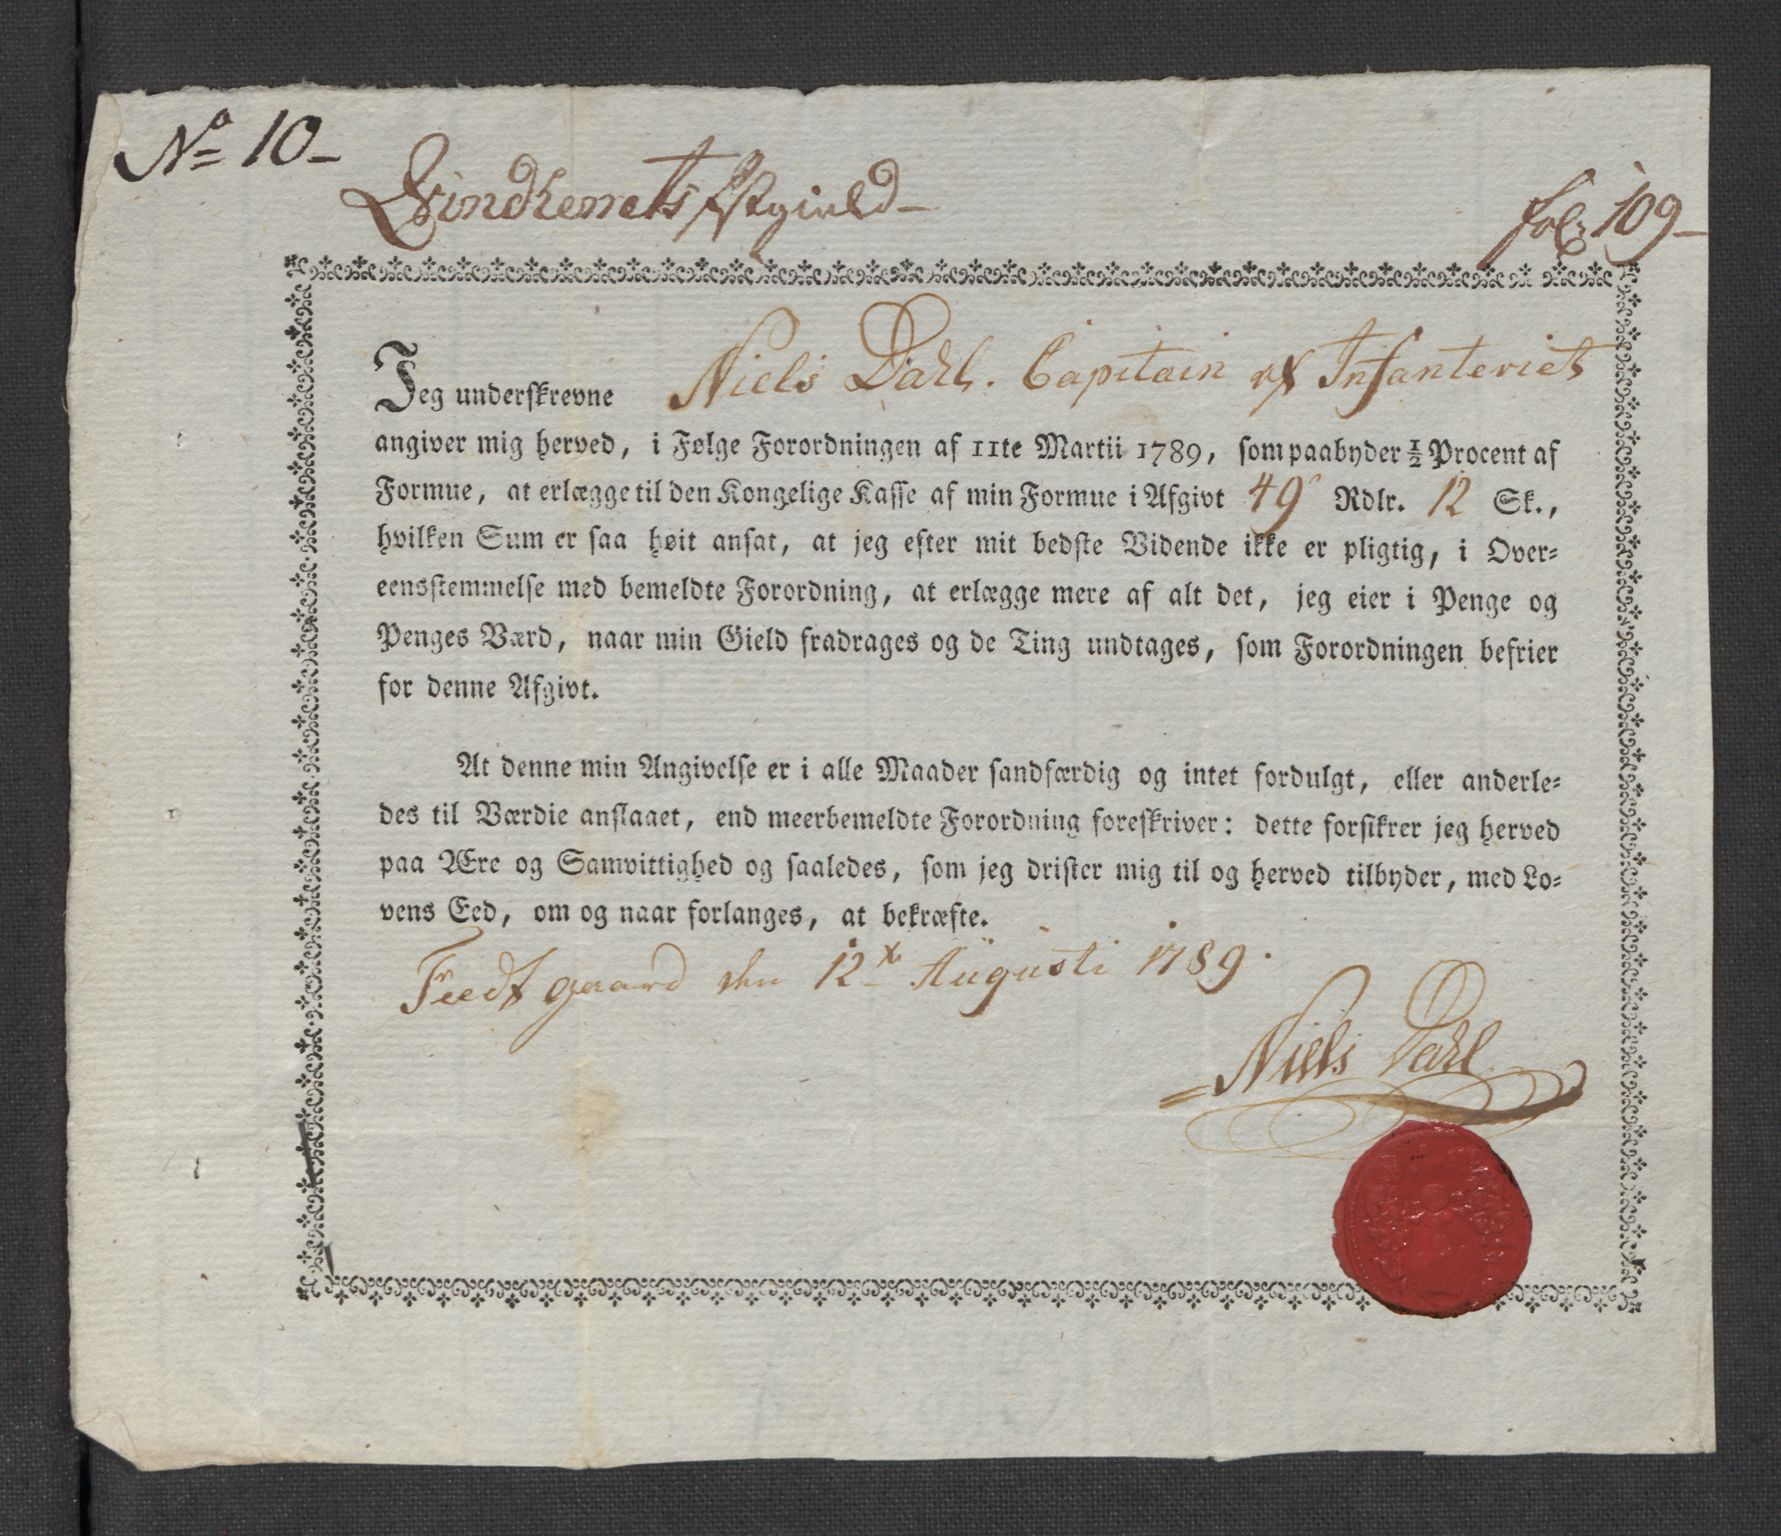 No 10
Qvindherrets Præstegield
fol: 109
Jeg underskrevne Niels Dahl. Capitain af Infanteriet
angiver mig herved, i Følge Forordningen af 11te Martii 1789, som paabyder ½ Procent af
Formue, at erlægge til den Kongelige Kasse af min Formue i Afgivt 49 Rdlr. 12 Sk.,
hvilken Sum er saa høit ansat, at jeg efter mit bedste Vidende ikke er pligtig, i Over-
eensstemmelse med bemeldte Forordning, at erlægge mere af alt det, jeg eier i Penge og
Penges Værd, naar min Gield fradrages og de Ting undtages, som Forordningen befrier
for denne Afgivt.
At denne min Angivelse er i alle Maader sandfærdig og intet fordulgt, eller anderle-
des til Værdie anslaaet, end meerbemeldte Forordning foreskriver: dette forsikrer jeg herved
paa Ære og Samvittighed og saaledes, som jeg drister mig til og herved tilbyder, med Lo-
vens Eed, om og naar forlanges, at bekræfte.
gaard den 12te Augusti 1789.
Niels Dahl